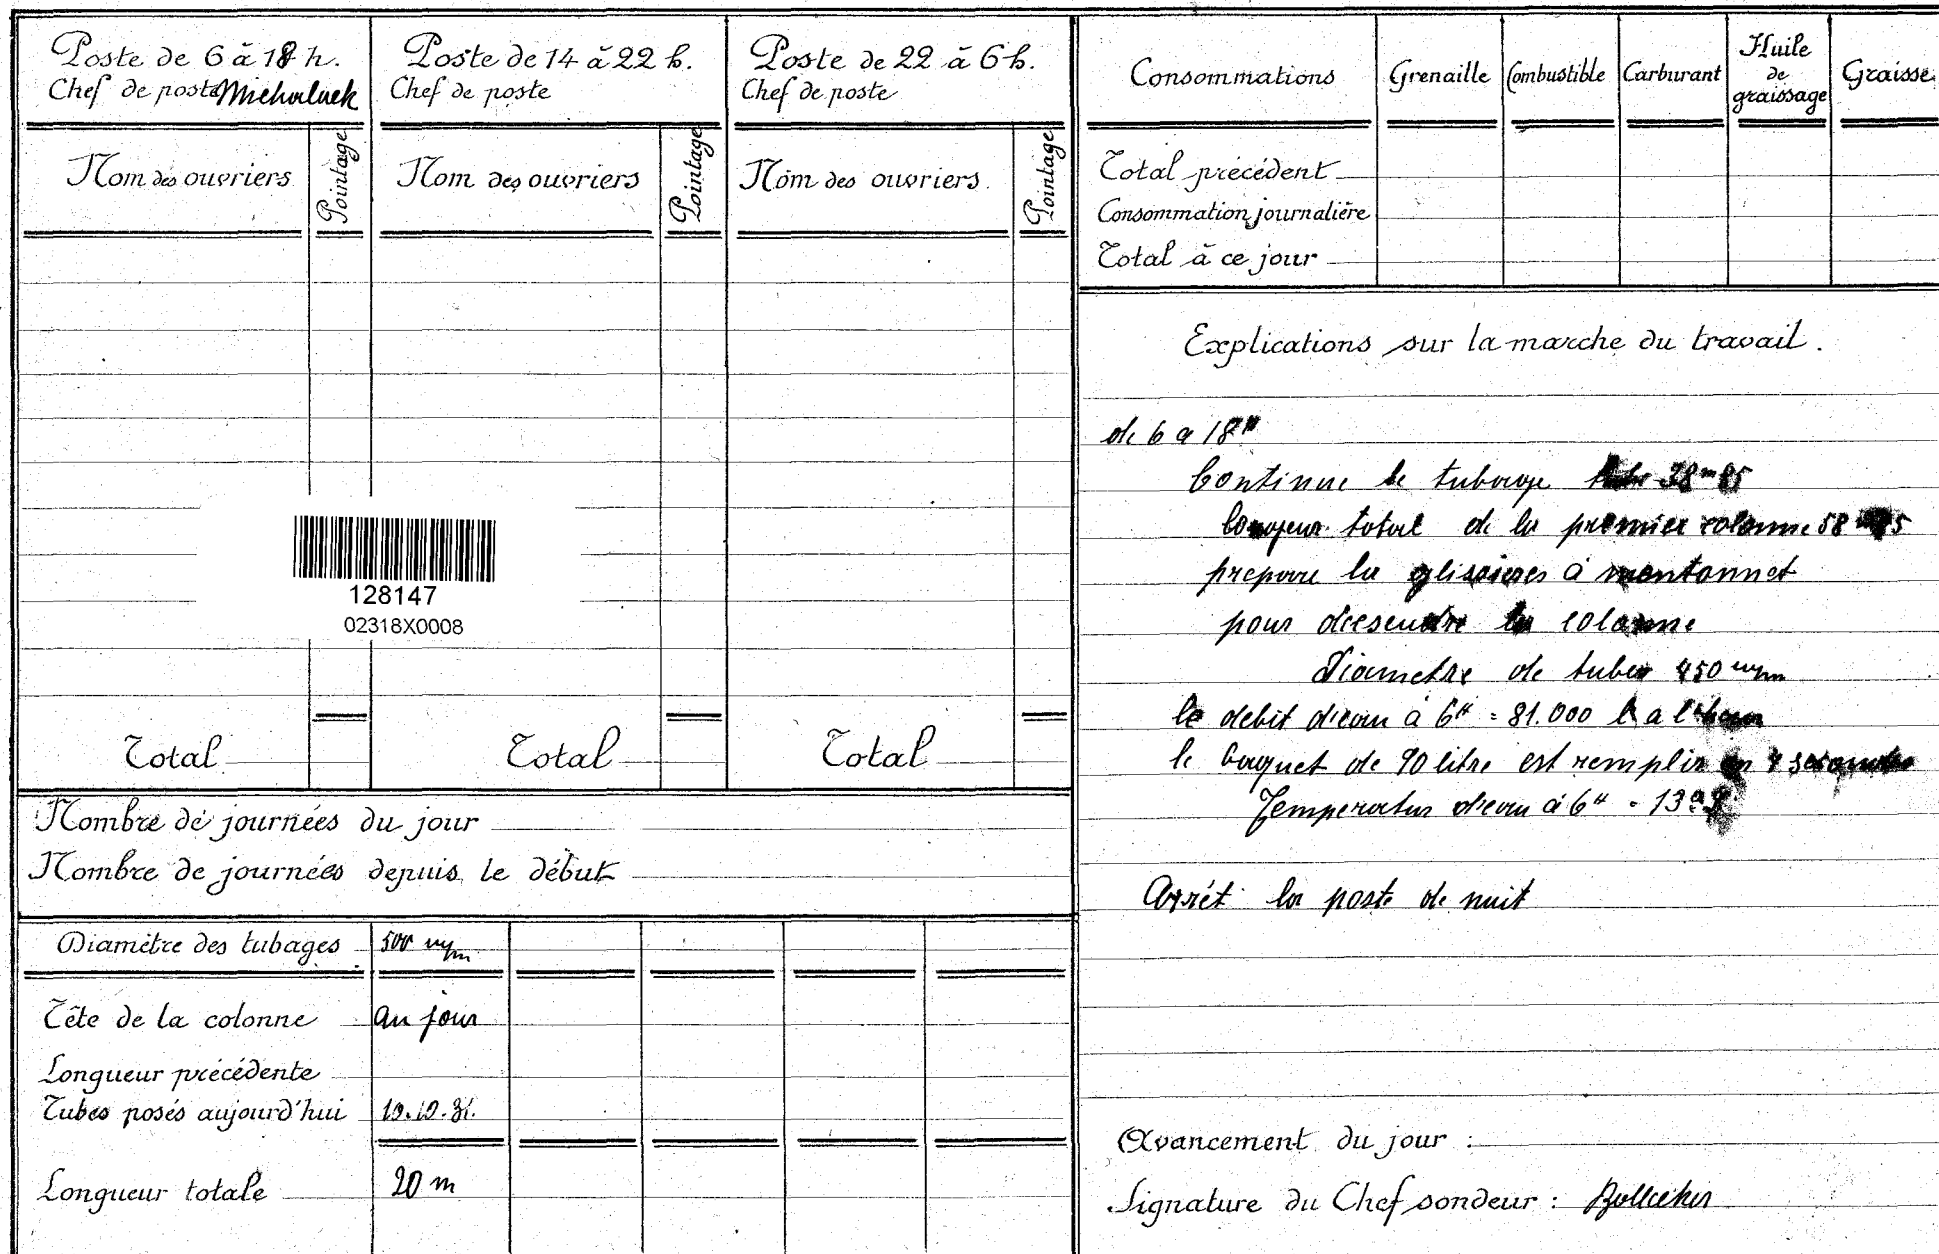 Poste de 6 à 18 h.
Chef de poste Michalack
Nom des ouvriers
Pointage
Total
Poste de 14 à 22 h.
Chef de poste
Nom des ouvriers
Pointage
Total
Poste de 22 à 6 h.
Chef de poste
Nom des ouvriers
Pointage
Total
128147
02318X0008
Nombre de journées du jour
Nombre de journées depuis le début
Diamètre des tubages 500 m/m
Tête de la colonne au jour
Longueur précédente
Tubes posés aujourd'hui
Longueur totale 20 m
Consommations Grenaille Combustible Carburant Huile de graissage Graisse
Total précédent
Consommation journalière
Total à ce jour
Explications sur la marche du travail.
de 6 a 18H
Continue le tubage 38m85
total de la premier colonne 58
prepare la glissieres à mentonnet
pour descendre la colonne
Diametre de tuber 450 m/m
le debit d'eau à 6H = 81.000 l a l'heur
le baquet de 90 litre est remplir en 4 secondes
Temperatur d'eau à 6H = 13
Arrét la poste de nuit
Avancement du jour :
Signature du Chef sondeur :